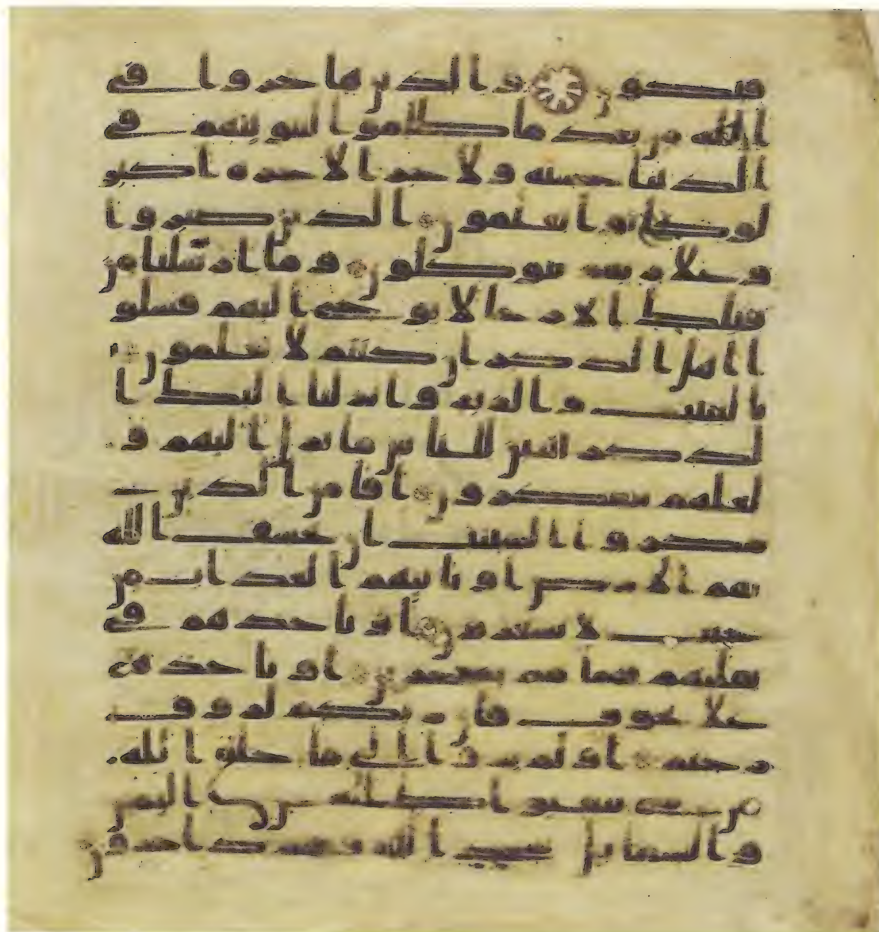 فيكون والذين هاجروا في
الله من بعد ما ظلموا لنبوئنهم في
الدنيا حسنة ولاجر الاخرة اكبر
لو كانوا يعلمون الذين صبروا
وعلى ربهم يتوكلون وما ارسلنا من
قبلك الا رجالا نوحي اليهم فسلو
ا اهل الذكر ان كنتم لا تعلمون
بالبينت والزبر وانزلنا اليك ا
لذكر لتبين للناس ما نزل اليهم و
لعلهم يتفكرون افامن الذين
مكروا السيت ان يخسف الله
بهم الارض او ياتيهم العذاب من
حيث لا يشعرون او ياخذهم في
تقلبهم فما هم بمعجزين او ياخذهم
على تخوف فان ربكم لروف
رحيم اولم يروا الى ما خلق الله
من شي يتفيوا ظلله عن اليمين
والشمايل سجدا لله وهم داخرون